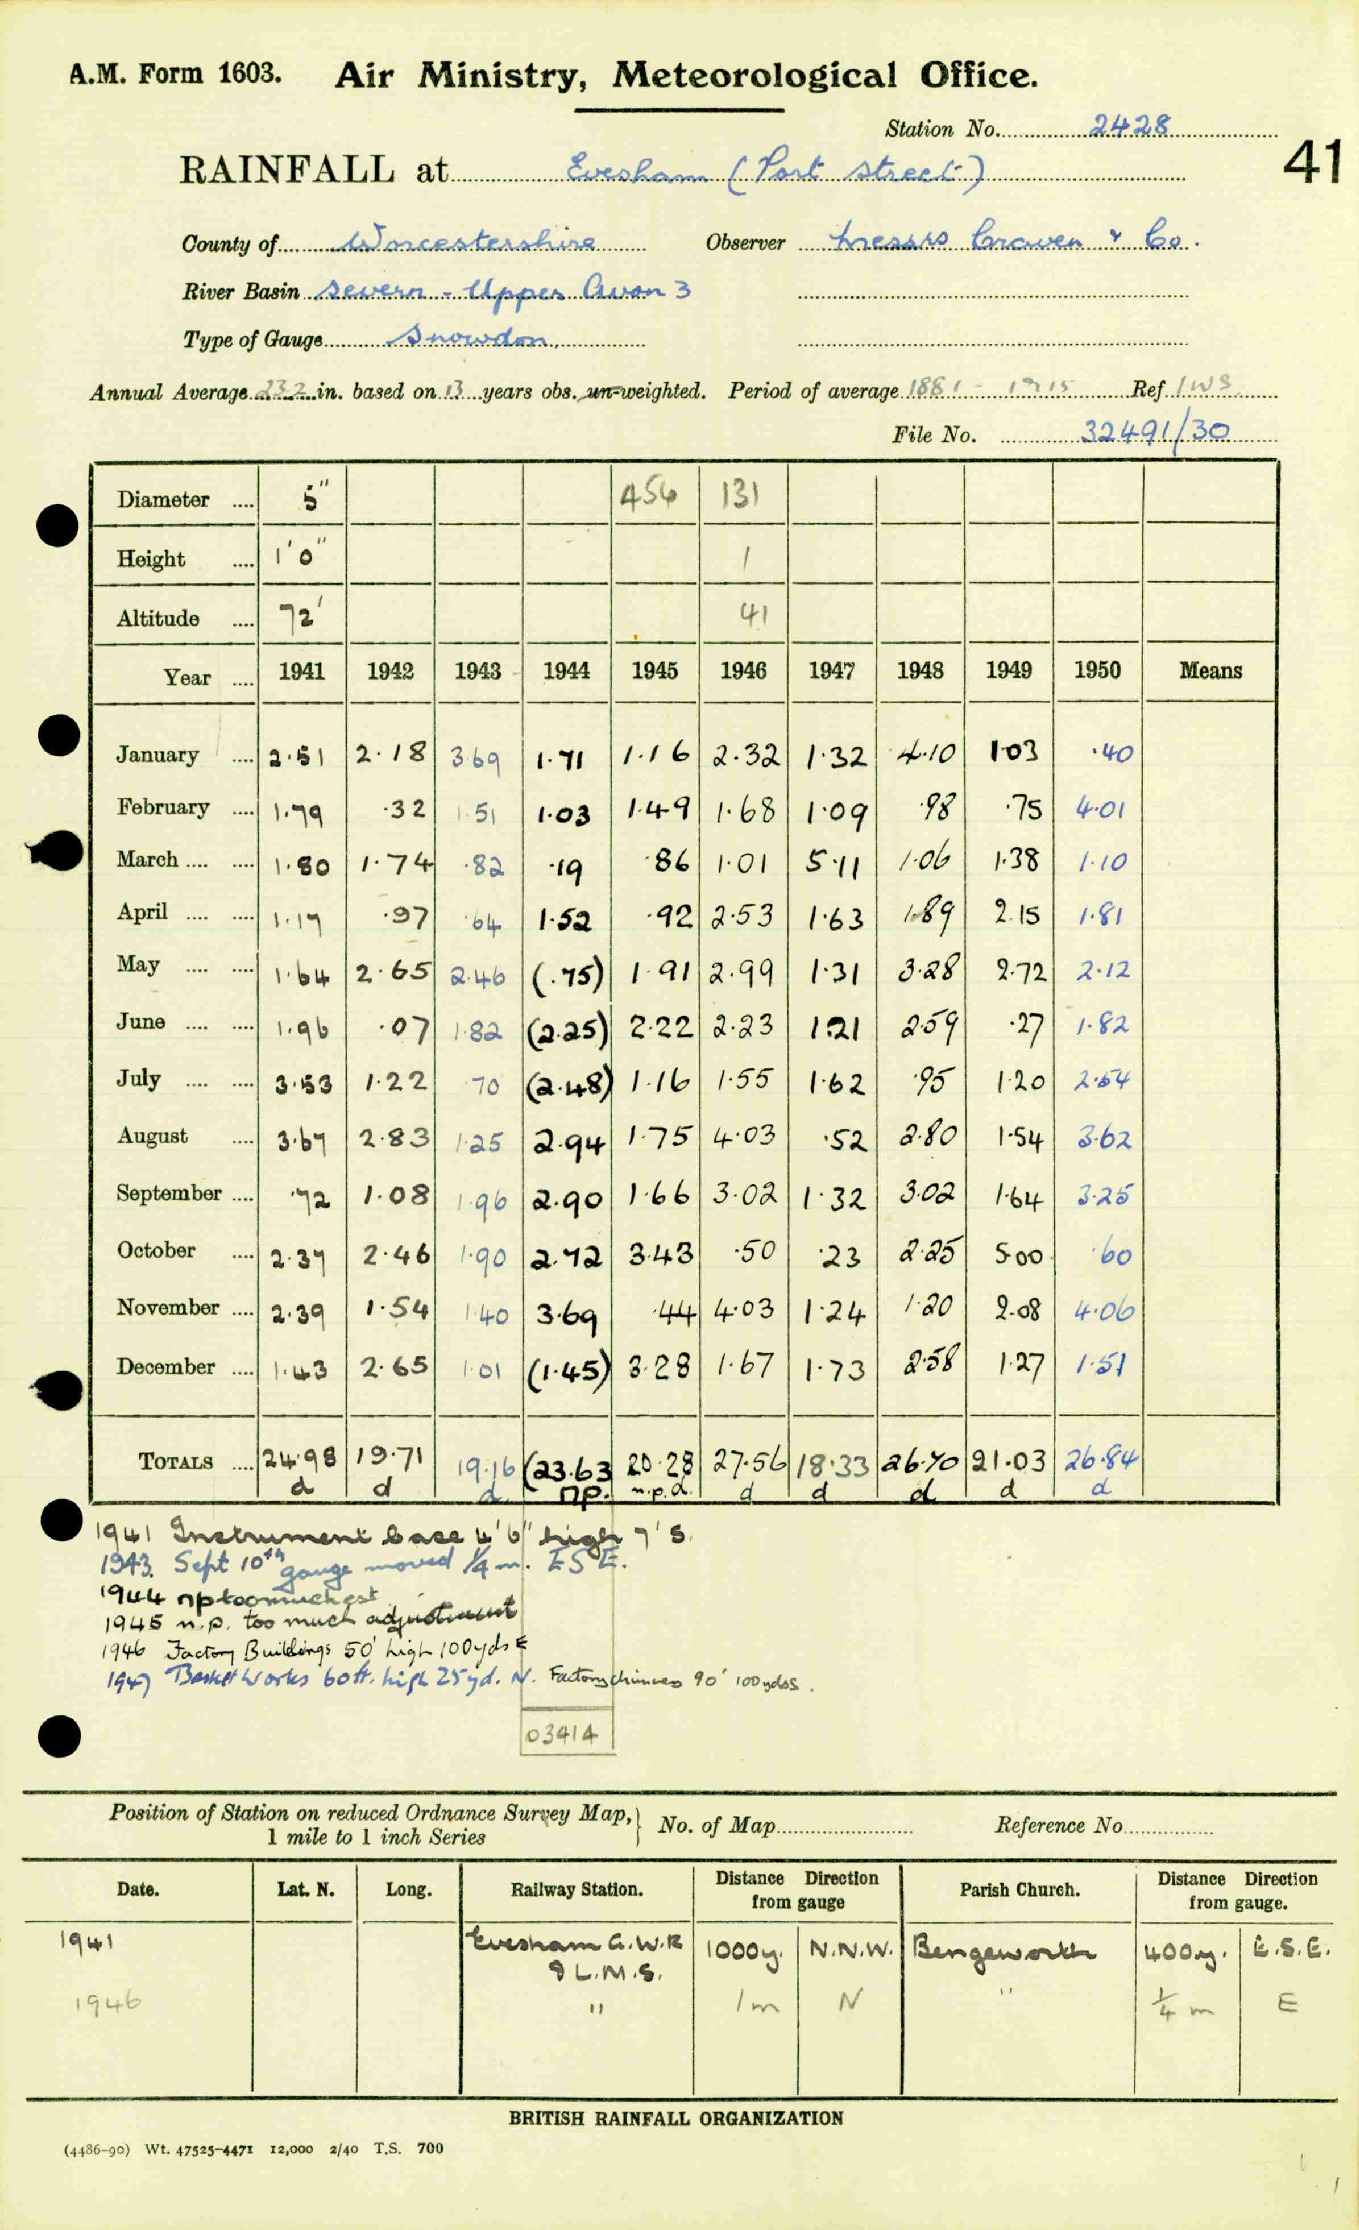 A.M. Form 1603. Air Ministry, Meteorological Office.
Station No. 2428
41
RAINFALL at Evesham (Port Street)
County of Worcestershire Observer Messrs Craven & Co.
River Basin Severn - Upper Avon 3
Type of Gauge Snowdon.
Annual Average 23.2 in. based on 13 years obs. un-weighted. Period of average 1881 - 1915 Ref IWS
File No. 32491/30
Diameter .... 5" 456 131
Height .... 1'0" 1
Altitude .... 72' 41
Year .... 1941 1942 1943 1944 1945 1946 1947 1948 1949 1950 Means
January .... 2.51 2.18 3.69 1.71 1.16 2.32 1.32 4.10 1.03 .40
February .... 1.79 .32 1.51 1.03 1.49 1.68 1.09 .98 .75 4.01
March .... .... 1.80 1.74 .82 .19 .86 1.01 5.11 1.06 1.38 1.10
April .... .... 1.17 .97 .64 1.52 .92 2.53 1.63 1.89 2.15 1.81
May .... .... 1.64 2.65 2.46 (.75) 1.91 2.99 1.31 3.28 2.72 2.12
June .... .... 1.96 .07 1.82 (2.25) 2.22 2.23 1.21 2.59 .27 1.82
July .... .... 3.53 1.22 .70 (2.48) 1.16 1.55 1.62 .95 1.20 2.54
August .... 3.67 2.83 1.25 2.94 1.75 4.03 .52 2.80 1.54 3.62
September .... .72 1.08 1.96 2.90 1.66 3.02 1.32 3.02 1.64 3.25
October .... 2.37 2.46 1.90 2.72 3.43 .50 .23 2.25 5.00 .60
November .... 2.39 1.54 1.40 3.69 .44 4.03 1.24 1.20 2.08 4.06
December .... 1.43 2.65 1.01 (1.45) 3.28 1.67 1.73 2.58 1.27 1.51
TOTALS .... 24.98 19.71 19.16 (23.63 20.28 27.56 18.33 26.70 21.03 26.84
d d d np. n.p.d. d d d d d
1941 Instrument base 4'6" high 7' S.
1943. Sept 10th gauge moved 1/4 m. ESE.
1944 np too much est
1945 n.p. too much adjustment
1946 Factory Buildings 50' high 100yds E
1947 Basket Works 60ft. high 25yd. N. Factory chimneys 90' 100yds S.
03414
Position of Station on reduced Ordnance Survey Map, } No. of Map Reference No.
1 mile to 1 inch Series
Date. Lat. N. Long. Railway Station. Distance Direction from gauge Parish Church. Distance Direction from gauge.
1941 Evesham G.W.R 1000y. N.N.W. Bengeworth 400y. E.S.E.
& L.M.S.
1946 " 1m N " 1/4 m E
BRITISH RAINFALL ORGANIZATION
(4486-90) Wt. 47525-4471 12,000 2/40 T.S. 700